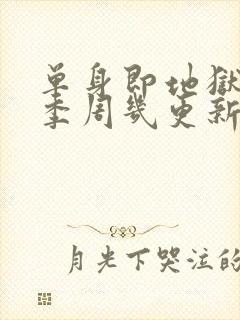 单身即地獄
季周幾更新
月光下哭泣的